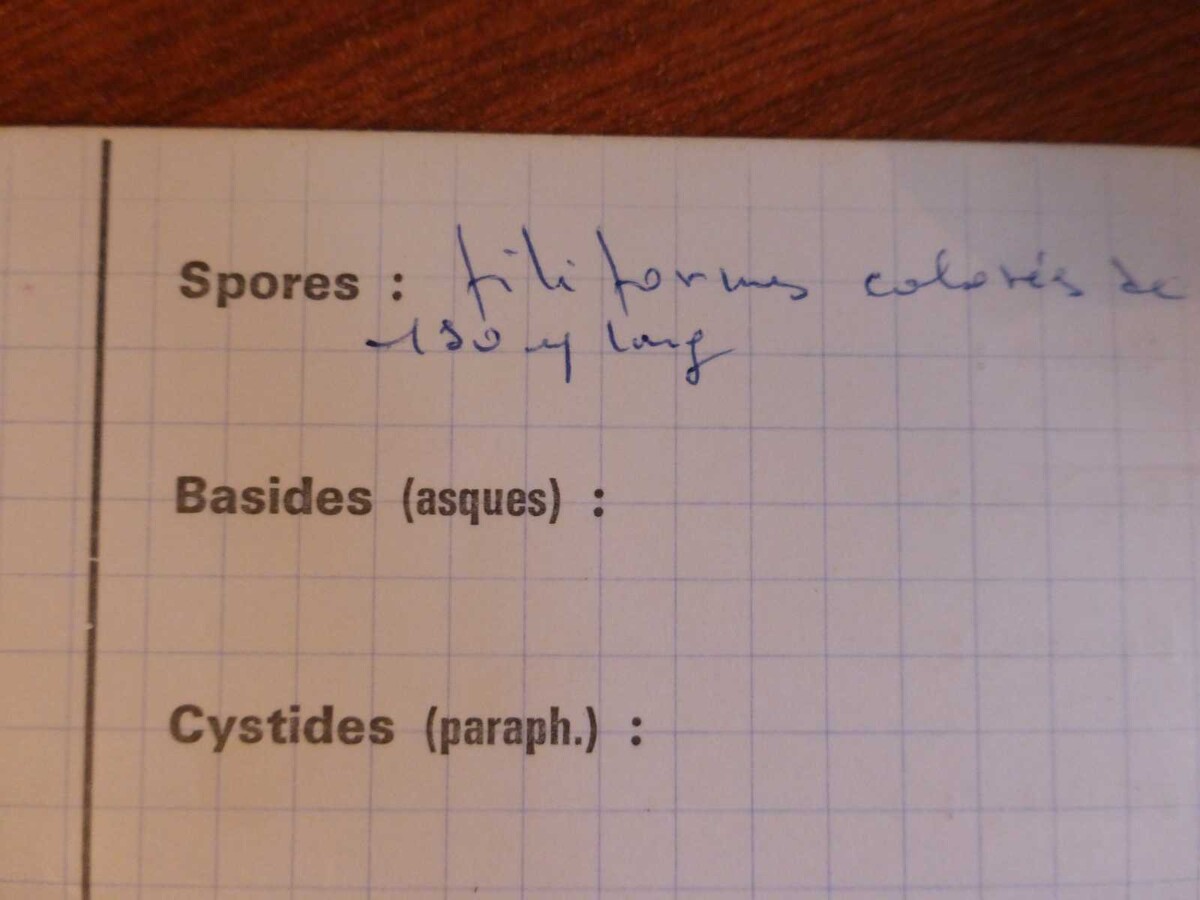 Spores : filiformes colorés de
130 µ long
Basides (asques) :
Cystides (paraph.) :